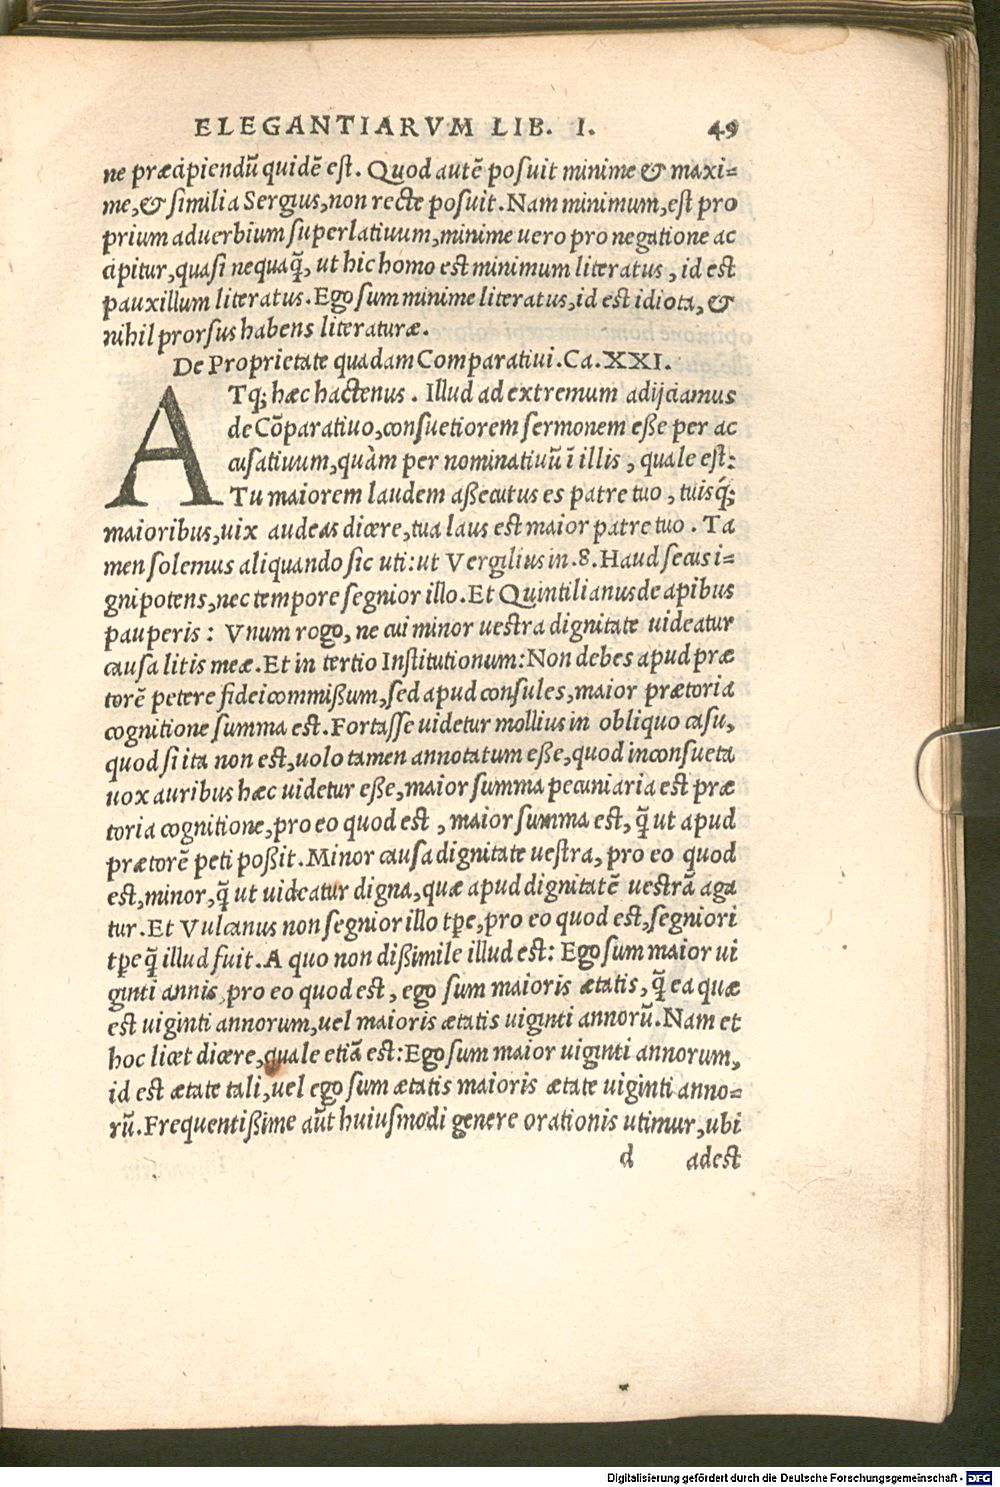 ELEGANTIARVM LIB. I. 49
ne præcipiendũ quidẽ est. Quod autẽ posuit minime & maxi=
me, & similia Sergius, non recte posuit. Nam minimum, est pro
prium aduerbium superlatiuum, minime uero pro negatione ac
cipitur, quasi nequaq̃, ut hic homo est minimum literatus, id est
pauxillum literatus. Ego sum minime literatus, id est idiota, &
nihil prorsus habens literaturæ.
De Proprietate quadam Comparatiui. Ca. XXI.
ATq; hæc hactenus. Illud ad extremum adijciamus
de Cõparatiuo, consuetiorem sermonem eße per ac
cusatiuum, quàm per nominatiuũ ĩ illis, quale est:
Tu maiorem laudem aßecutus es patre tuo, tuisq́;
maioribus, uix audeas dicere, tua laus est maior patre tuo. Ta
men solemus aliquando sic uti: ut Vergilius in .8. Haud secus i=
gnipotens, nec tempore segnior illo. Et Quintilianus de apibus
pauperis: Vnum rogo, ne cui minor uestra dignitate uideatur
causa litis meæ. Et in tertio Institutionum: Non debes apud præ
torẽ petere fideicommißum, sed apud consules, maior prætoria
cognitione summa est. Fortasse uidetur mollius in obliquo casu,
quod si ita non est, uolo tamen annotatum eße, quod inconsueta
uox auribus hæc uidetur eße, maior summa pecuniaria est præ
toria cognitione, pro eo quod est, maior summa est, q̃ ut apud
prætorẽ peti poßit. Minor causa dignitate uestra, pro eo quod
est, minor, q̃ ut uideatur digna, quæ apud dignitatẽ uestrã aga
tur. Et Vulcanus non segnior illo tp̃e, pro eo quod est, segniori
tp̃e q̃ illud fuit. A quo non dißimile illud est: Ego sum maior ui
ginti annis, pro eo quod est, ego sum maioris ætatis, q̃ ea quæ
est uiginti annorum, uel maioris ætatis uiginti annorũ. Nam et
hoc licet dicere, quale etiã est: Ego sum maior uiginti annorum,
id est ætate tali, uel ego sum ætatis maioris ætate uiginti anno=
rũ. Frequentißime aũt huiusmodi genere orationis utimur, ubi
d adest
Digitalisierung gefördert durch die Deutsche Forschungsgemeinschaft - DFG